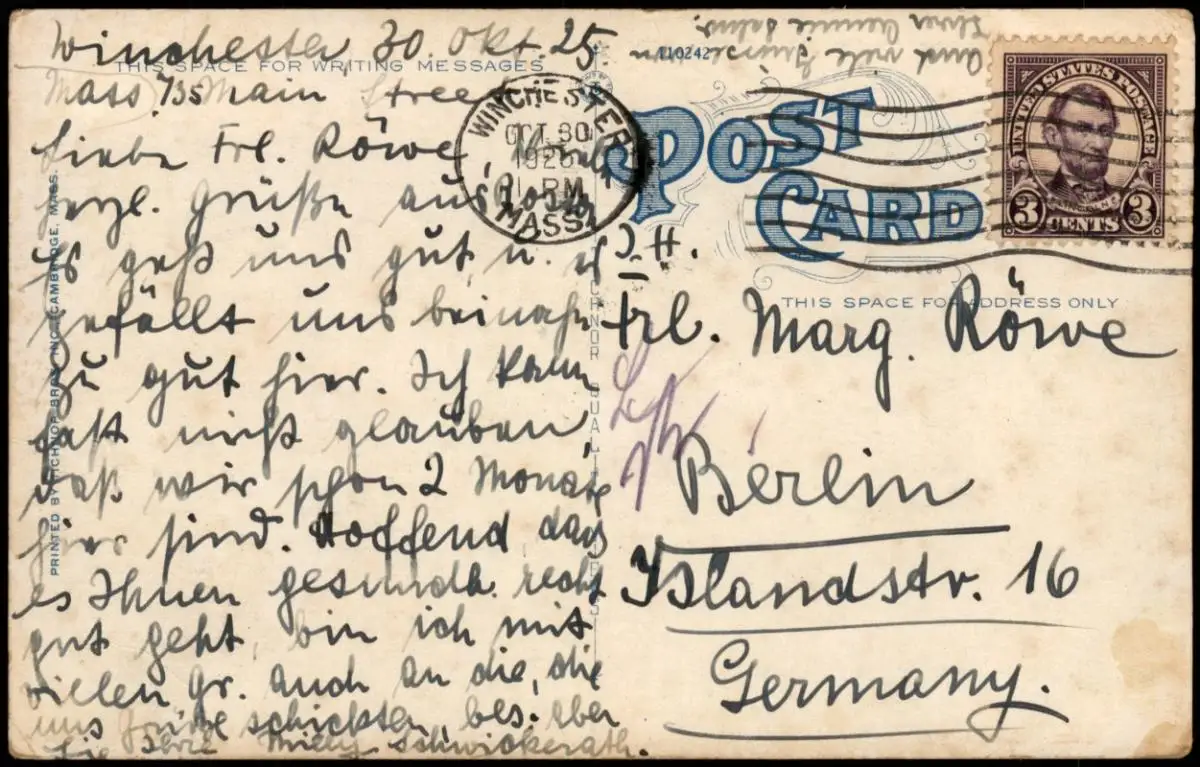 Winchester, 30. Okt. 25.
THIS SPACE FOR WRITING MESSAGES
Mass 735 Main Street
Liebe Frl. Röwe,
herzl. Grüße aus
Es geht uns gut, u. es
gefällt uns beinahe
zu gut hier. Ich kann
fast nicht glauben,
daß wir schon 2 Monate
hier sind. Hoffend, dass
es Ihnen gesundh. recht
gut geht, bin ich mit
vielen Gr. auch an die, die
uns Grüße schickten, bes. aber
Sie Ihre Willy Schwickerath.
und viele
110242
WINCHESTER
OCT 30
1925
PM
MASS.
POST CARD
UNITED STATES POSTAGE
3 CENTS 3
THIS SPACE FOR ADDRESS ONLY
I. H.
Frl. Marg. Röwe
Berlin
Islandstr. 16
Germany.
PRINTED BY TICHNOR BROS. INC. CAMBRIDGE, MASS.
TICHNOR QUALITY